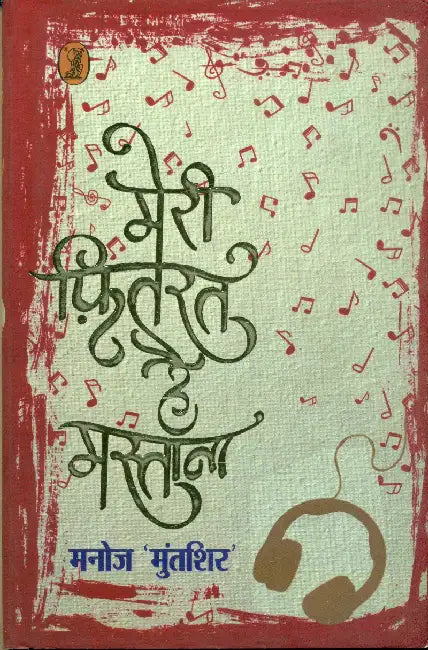 मेरी
फ़ितरत
है
मस्ताना
मनोज 'मुंतशिर'